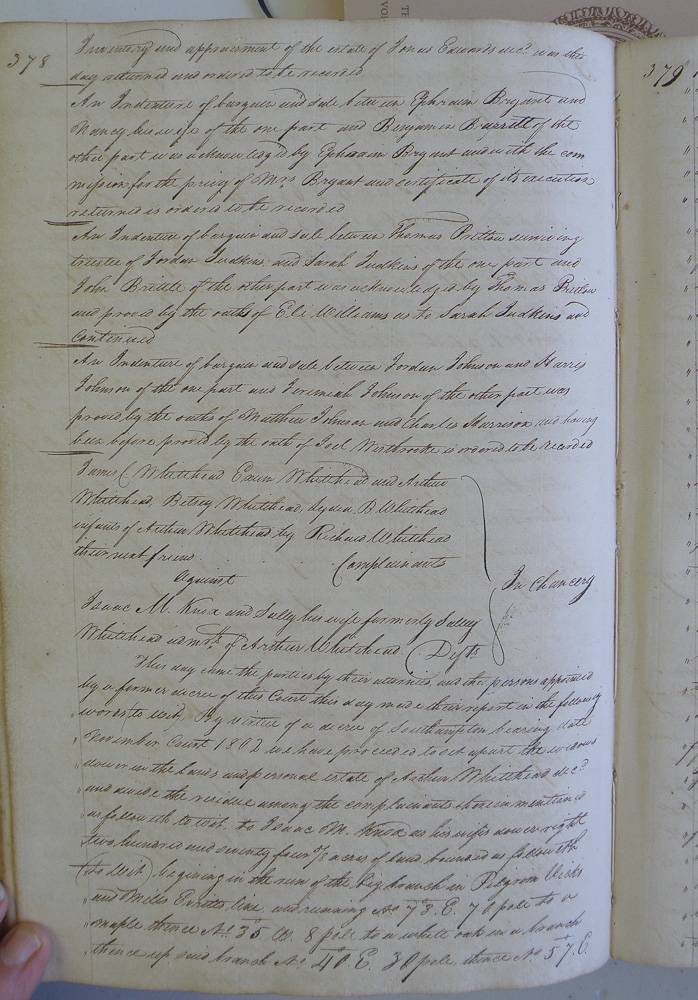 378
Inventory and appraisment of the estate of Jonas Edwards decd was this
day returned and ordered to be recorded
An Indenture of bargain and sale between Ephraim Bryant and
Nancy his wife of the one part and Benjamin Barrett of the
other part was acknowledged by Ephraim Bryant and with the com
mission for the privy of Mrs Bryant and certificate of its execution
returned is ordered to be recorded
An Indenture of bargain and sale between Thomas Pretlow surviving
trustee of Jordan Judkins, and Sarah Judkins of the one part and
John Brittle of the other part was acknowledged by Thomas Pretlow
and proved by the oaths of Eli Williams as to Sarah Judkins and
continued
An Indenture of bargain and sale between Jordan Johnson and Harris
Johnson of the one part and Jeremiah Johnson of the other part was
proved by the oaths of Matthew Johnson and Charles Harrison and having
been before proved by the oath of Joel Westbrooke is ordered to be recorded
James Whitehead Exum Whitehead and Arthur
Whitehead, Betsey Whitehead, B Whitehead
infants of Arthur Whitehead by Richard Whitehead
their next friend Complainants
against In Chancery
Isaac M. Knox and Sally his wife formerly Salley
Whitehead admx of Arthur Whitehead Defts
This day came the parties by their attornies, and the persons appointed
by a former decree of this Court this day made their report in the following
words to wit, By virtue of a decree of Southampton bearing date
November Court 1802 we have proceeded to set apart the widows
dower in the lands and personal estate of Arthur Whitehead decd
and divide the residue among the complainants therein mentioned
as followeth to wit. to Isaac M. Knox as his wifes dower right
two hundred and seventy four acres of land bounded as followeth
(to wit) begining in the run of the big branch in Pilgrom Vicks
and Miles line and running No 73. E. 70 pole to a
maple thence No 35 W. 8 pole to a white oak in a branch
thence up said branch No 40 E. 30 pole thence No 57. E.
379